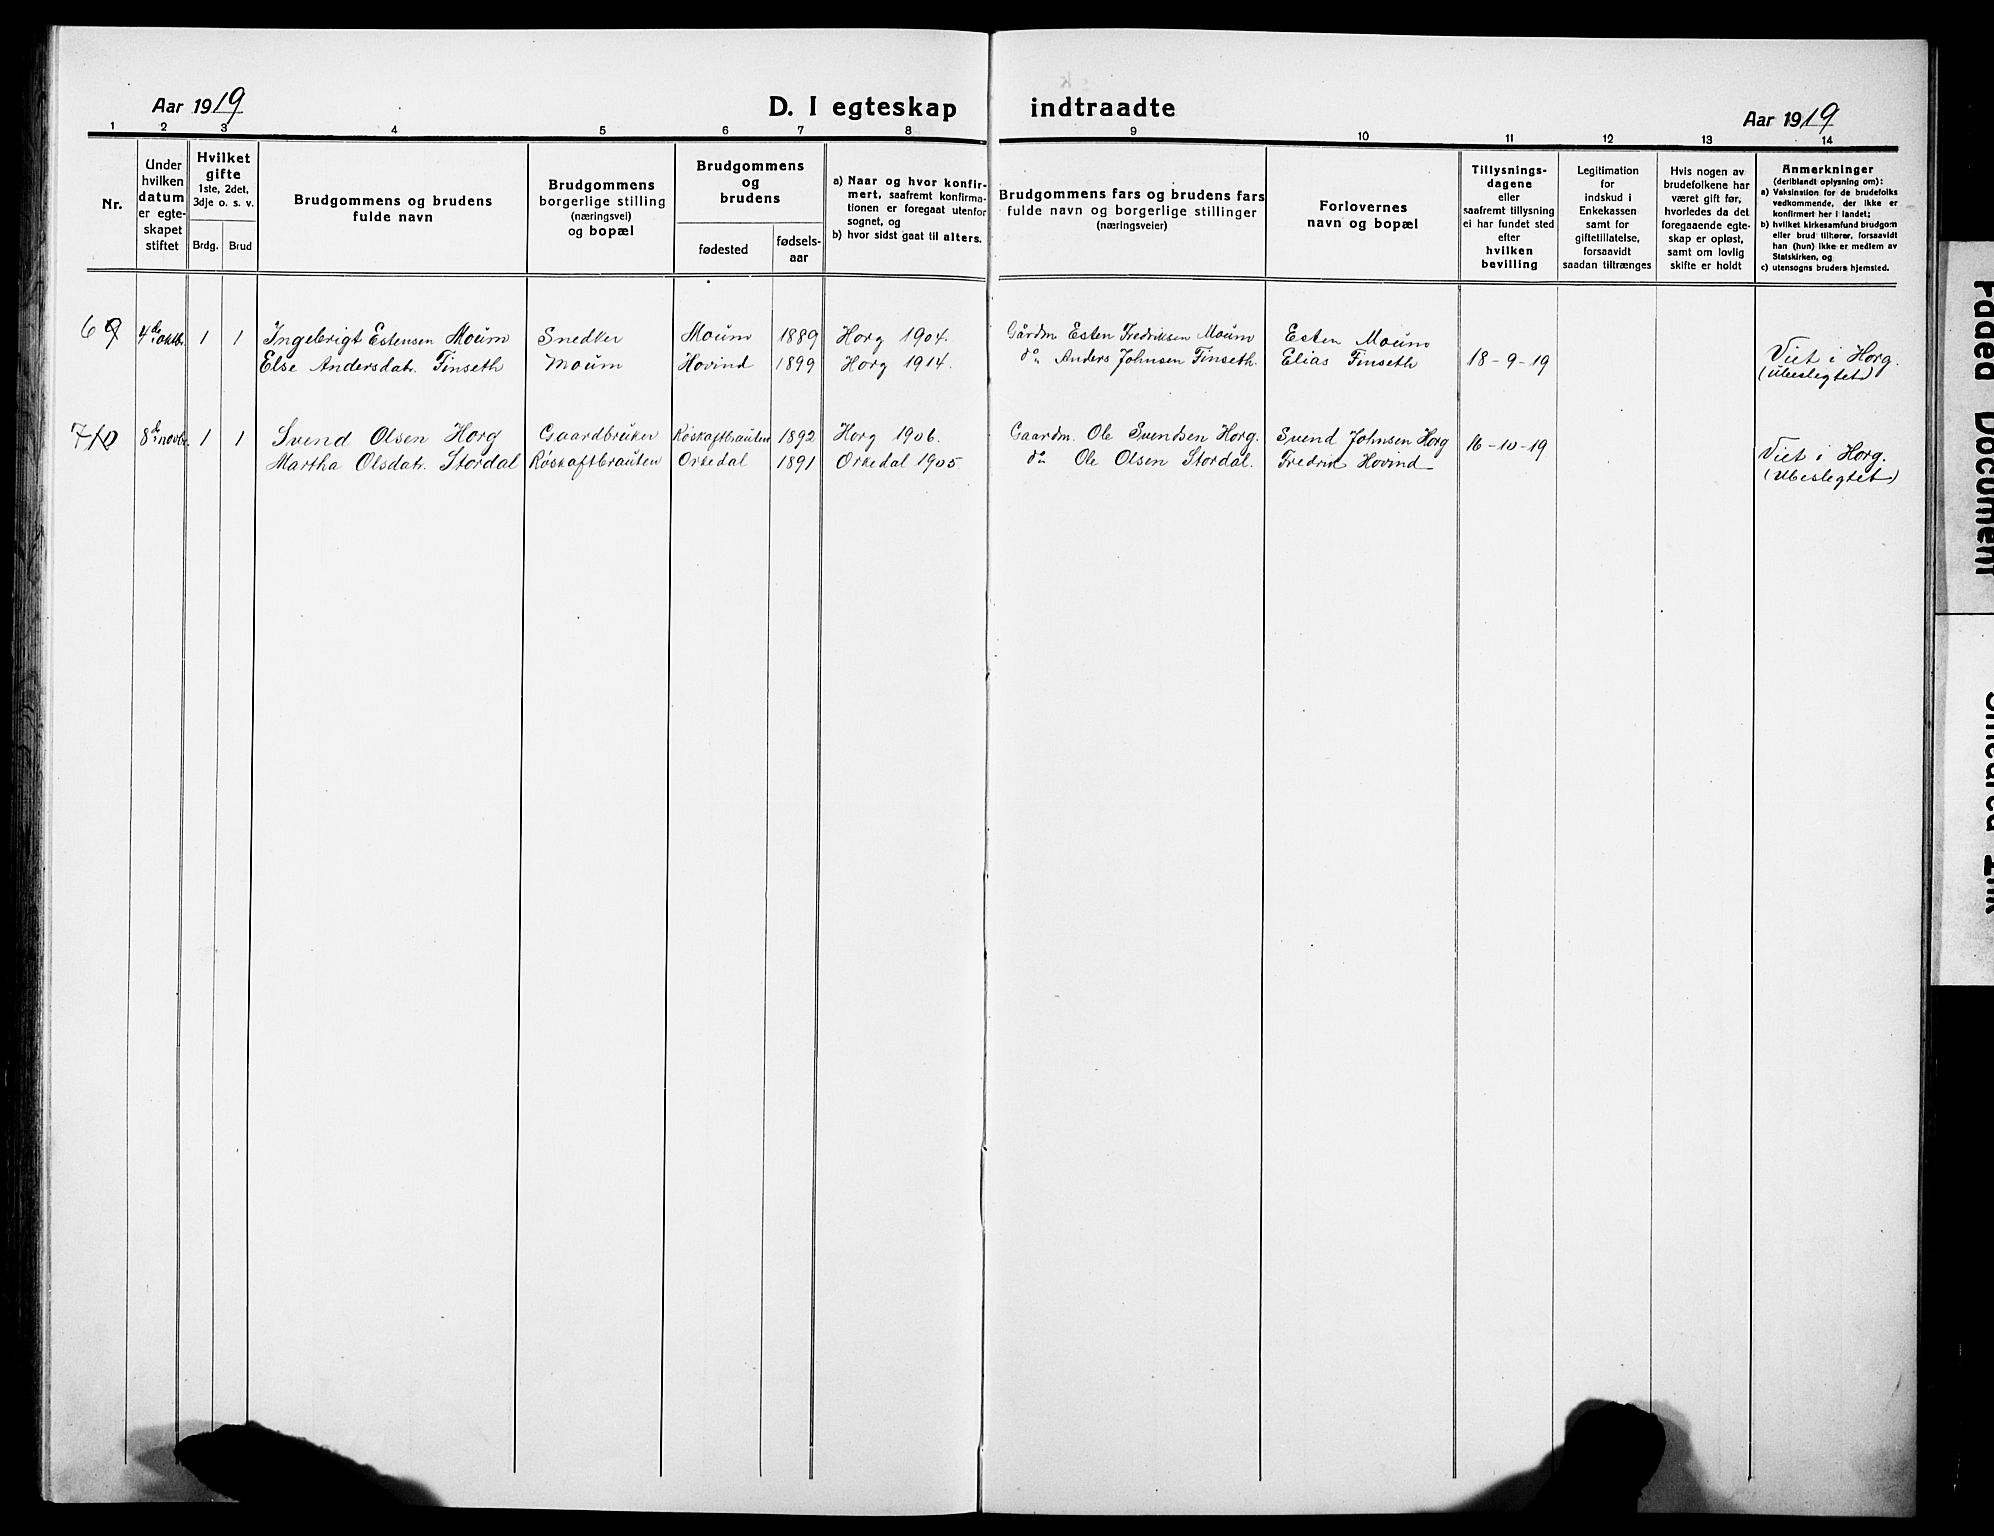 Aar 1919
D. I egteskap indtraadte
Aar 1919
1 2 3 4 5 6 7 8 9 10 11 12 13 14
Nr.
Under
hvilken
datum
er egte-
skapet
stiftet
Hvilket
gifte
1ste, 2det,
3dje o. s. v.
Brdg. Brud
Brudgommens og brudens
fulde navn
Brudgommens
borgerlige stilling
(næringsvei)
og bopæl
Brudgommens
og
brudens
fødested
fødsels-
aar
a) Naar og hvor konfir-
mert, saafremt konfirma-
tionen er foregaat utenfor
sognet, og
b) hvor sidst gaat til alters.
Brudgommens fars og brudens fars
fulde navn og borgerlige stillinger
(næringsveier)
Forlovernes
navn og bopæl
Tillysnings-
dagene
eller
saafremt tillysning
ei har fundet sted
efter
hvilken
bevilling
Legitimation
for
indskud i
Enkekassen
samt for
giftetillatelse,
forsaavidt
saadan tiltrænges
Hvis nogen av
brudefolkene har
været gift før,
hvorledes da det
foregaaende egte-
skap er opløst,
samt om lovlig
skifte er holdt
Anmerkninger
(deriblandt oplysning om):
a) Vaksination for de brudefolks
vedkommende, der ikke er
konfirmert her i landet;
b) hvilket kirkesamfund brudgom
eller brud tilhører, forsaavidt
han (hun) ikke er medlem av
Statskirken, og
c) utensogns bruders hjemsted.
6 9 4de oktbr. 1 1 Ingebrigt Estensen Moum Snedker Moum 1889 Horg 1904. Gårdm Esten Fredriksen Moum Esten Moum
Else Andersdatr. Finseth Moum Hovind 1899 Horg 1914. do Anders Johnsen Finseth. Elias Finseth 18-9-19 Viet i Horg.
(Ubeslegtet)
7 10 8de novbr. 1 1 Svend Olsen Horg Gaardbruker Røskaftbrauten 1892 Horg 1906. Gaardm. Ole Svendsen Horg. Svend Johnsen Horg 16-10-19
Martha Olsdatr. Stordal Røskaftbrauten Orkedal 1891 Orkedal 1905 do Ole Olsen Stordal. Fredrik Hovind Viet i Horg.
(Ubeslegtet)
Faded Document
Smeared Ink